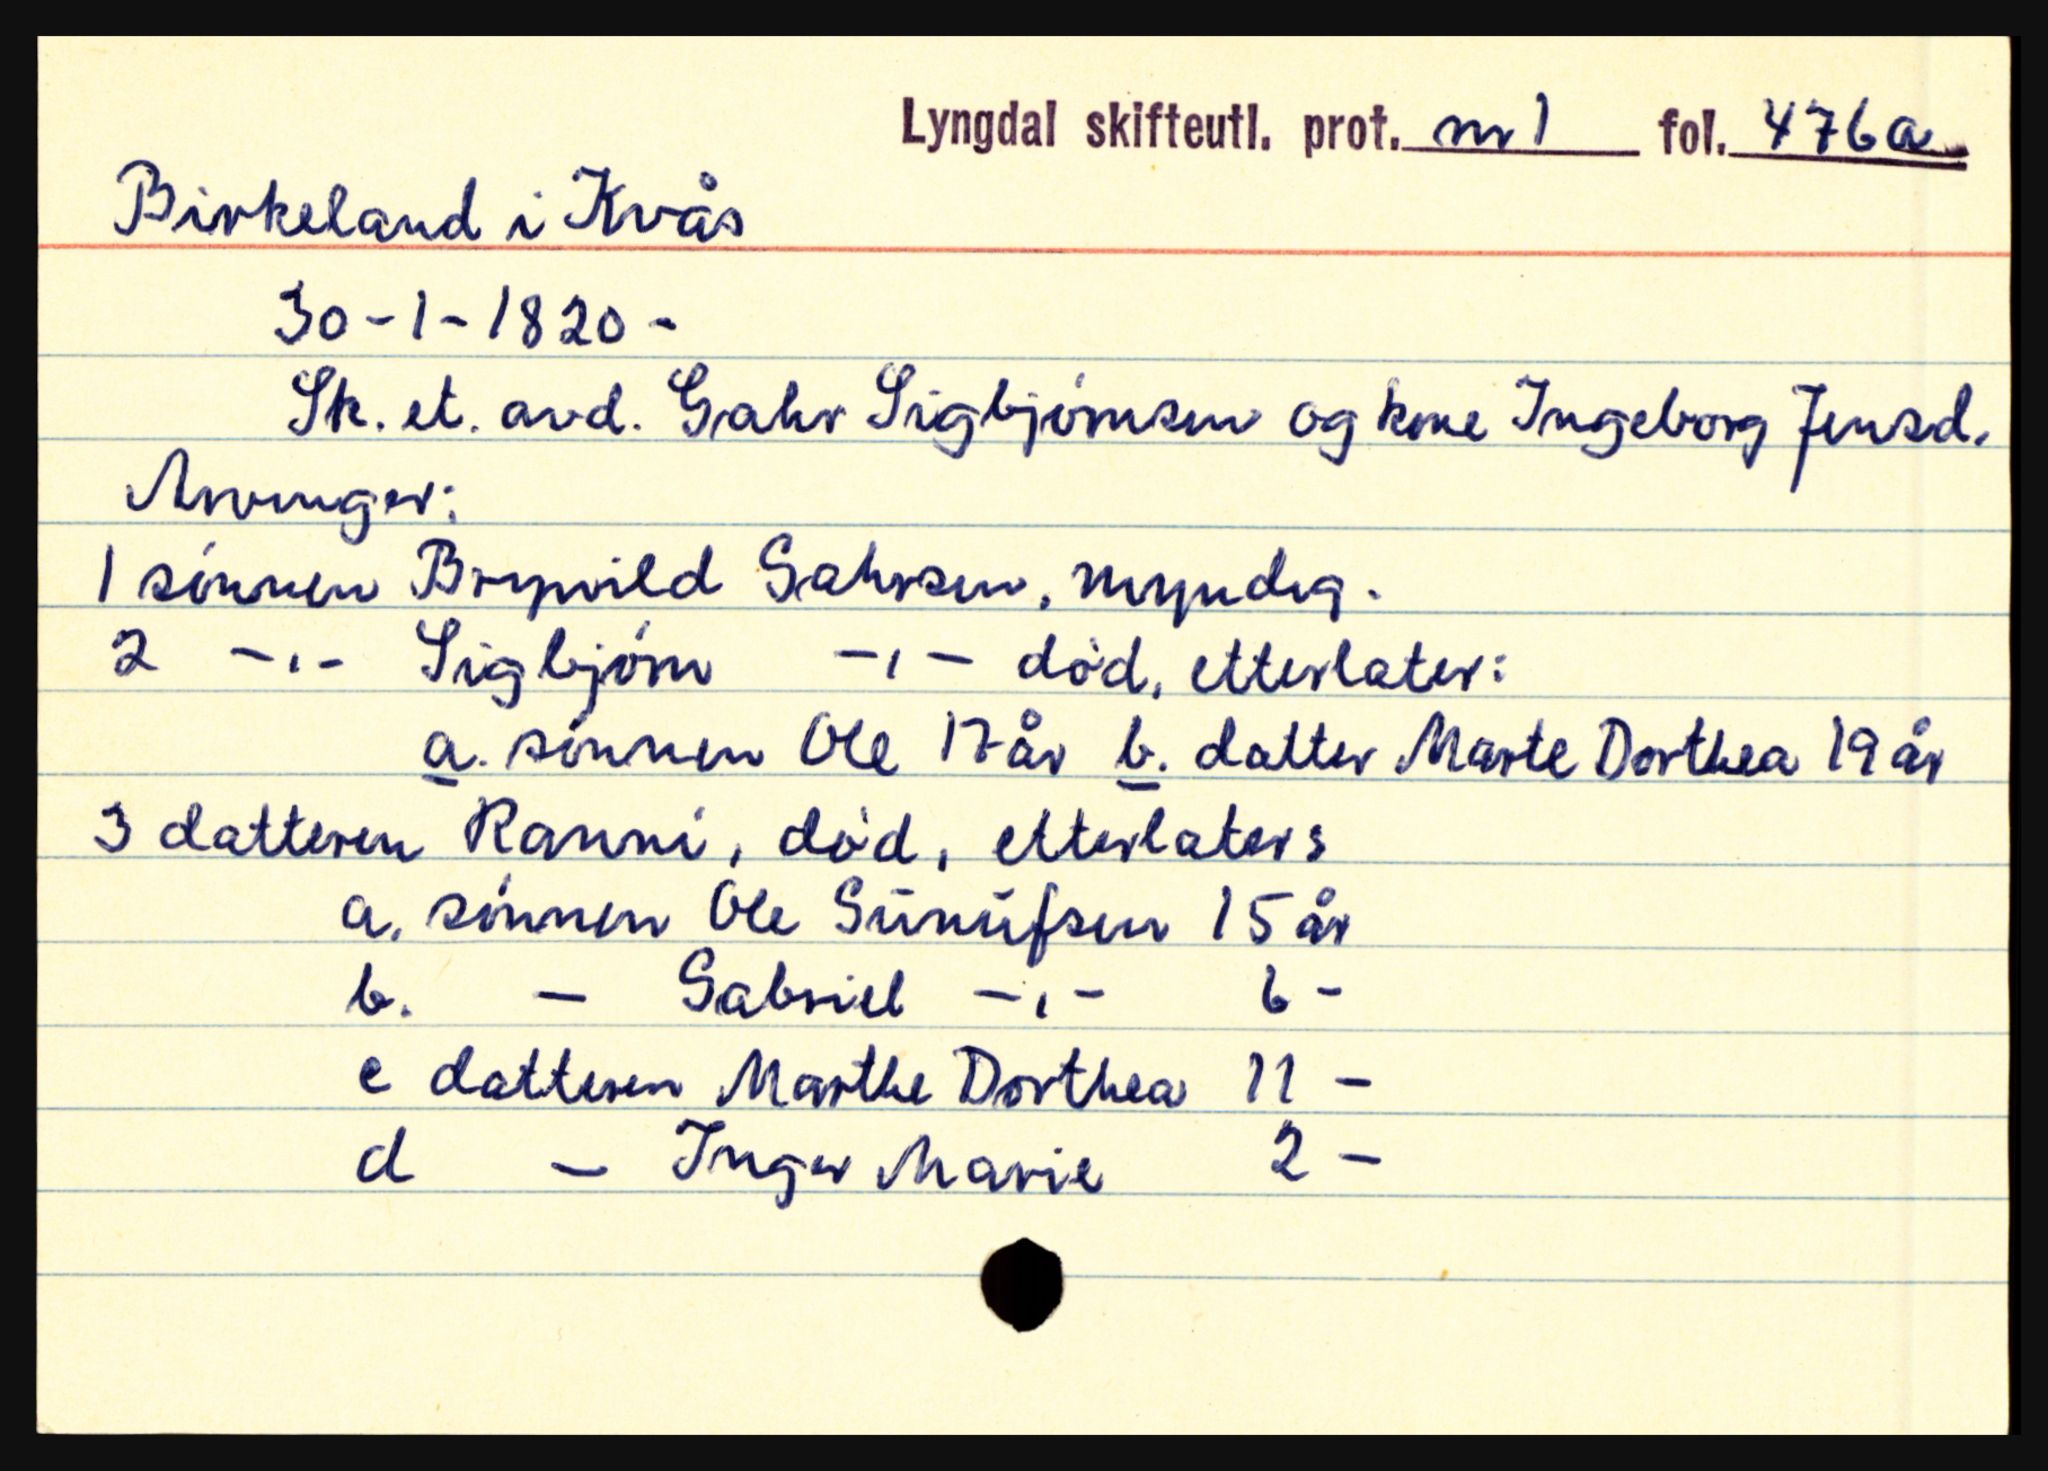 Lyngdal skifteutl. prot. nr 1 fol. 476a
Birkeland i Kvås
30-1-1820-
Sk. et. avd. Gahr Sigbjørnsen og kone Ingeborg Jensd.
Arvinger:
1 sønnen Brynild Gahrsen, myndig.
2 -,,- Sigbjørn -,,- død, etterlater:
a. sønnen Ole 17 år b. datter Marte Dorthea 19 år
3 datteren Ranni, død, etterlater:
a. sønnen Ole Gunufsen 15 år
b. - Gabriel -,,- 6 -
c datteren Marthe Dorthea 11 -
d - Inger Marie 2 -